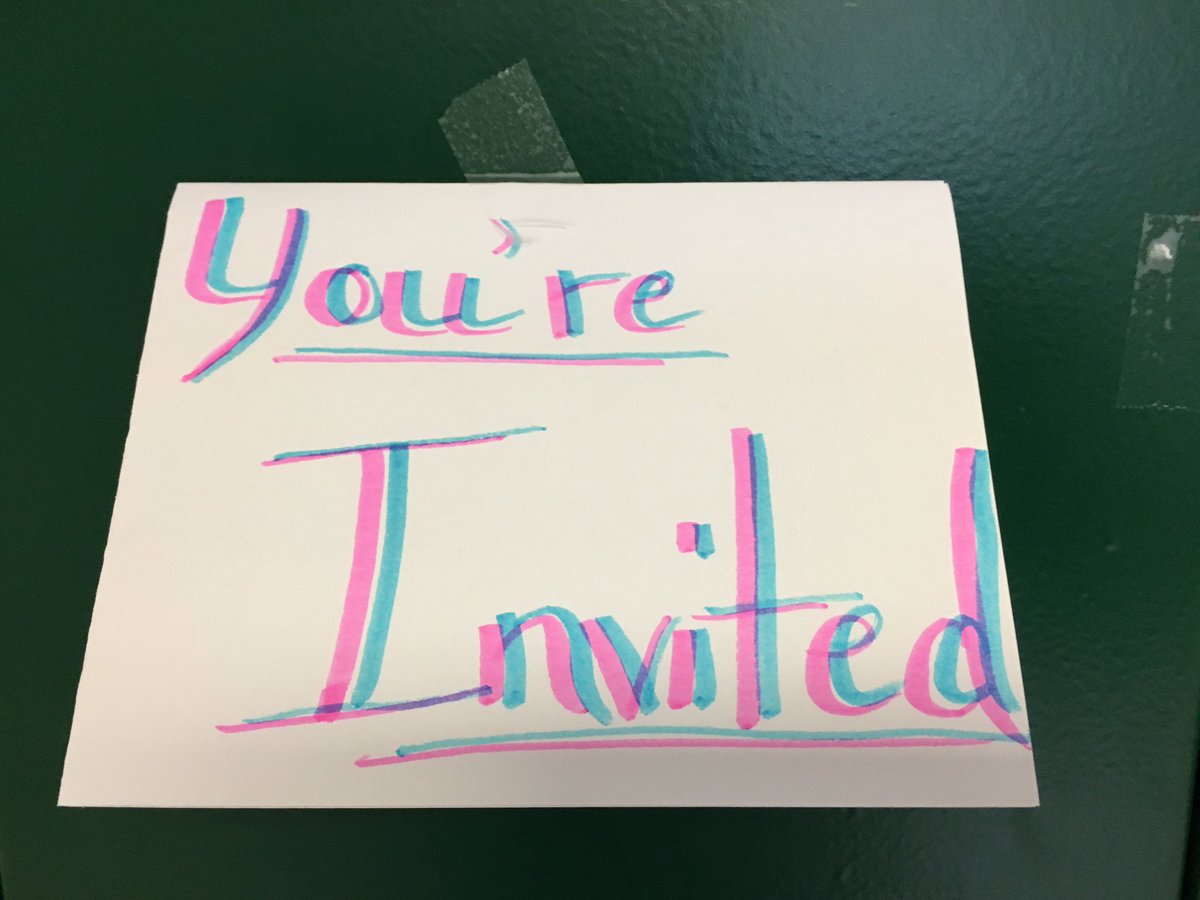 You're
Invited